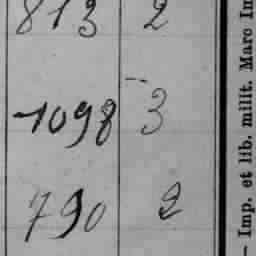 813 2
1098 3
790 2
— Imp. et lib. milit. Marc Im